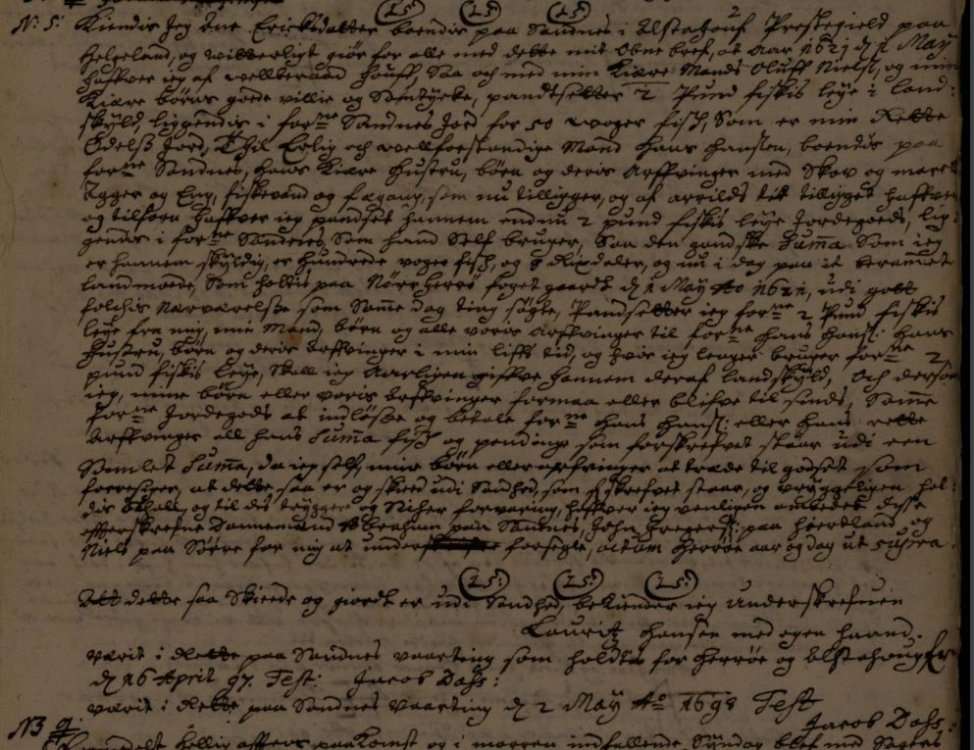 (L S) (L S) (L S)
N: 5: Kiendis Jeg Ane Erichsdatter boendis paa Sandnes i Alstahoug Prestegield paa
Helgeland, og witterligt giør for alle med dette mit Obne bref, at Aar 1621 d 2 May
hafver ieg af velberaad houf, saa och med min Kiære Mands Oluff Nielss, og min
Kiære børns gode villie og Samtycke, pandtsetter 2 Pund fiskis leye i land-
skyld, liggendis i forne Sandnes Jord for 50 woger fisk, som er min Rette
Odels Jord, Thil Erlig och velforstandige Mand Hans Hanssen, boendis paa
forne Sandnes, hans Kiære hustru, børn og deris Arffvinger med Skov og march
Agger og Eng, fiskevand og fægang, som nu tilligger, og af arrilds tid tilligget haffver
og tilforn haffver ieg pandset hannem endnu 2 pund fiskis leye Jordegoeds, lig-
gendis i forne Sandnes, som hand self bruger, saa den gandske Summa som ieg
er hannem skyldig, er hundrede voger fisk, og 8 Rixdaler, og nu i dag paa it berammet
landmoede, som holtis paa Nørr Herrø foget gaardt d 2 May Ao 1621, udi gott
folchis nærværelse som samme dag ting søgte, Pandsetter ieg forne 2 Pund fiskis
leye fra mig, min Mand, børn og alle voris Arffvinger til forne Hans Hanss: hans
hustru, børn og deris Arffvinger i min liffs tid, og hvor ieg lenger bruger forne 2
pund fiskis leye, skall ieg Aarligen giffve hannem deraf landskyld, och dersom
ieg, mine børn eller voris Arffvinger formaa eller blifve til sinds, samme
forne Jordegods at indløsse og betale forne Hans Hanss: eller hans rette
Arffvinger all hans Summa fisk og pendinge som forskrefvet staar udi een
Samlet Summa, da ieg self, mine børn eller arfvinger at træde til godset som
foeresiger, at dette saa er og skeed udi Sandhed, som forskrefvet staar, og uryggeligen hol-
dis skall, og til dis trygger og Sicher forvaring, haffver ieg venligen ombedet disse
efterskrefne Dannemænd Abraham paa Sandnes, John Gregerss: paa Hiertland og
Niels paa Sørre for mig at under forsegle, actum Herrøe aar og dag ut supra.
(L S:) (L S:) (L S:)
Att dette saa Skeede og giordt er udi Sandhed, bekiender ieg Underskrefven
Lauritz Hansen med egen haand.
Værit i Rette paa Sandnes vaarting som holdtis for Herrøe og Alstahoug
d 26 April 97. Test: Jacob Dahs:
Værit i Rette paa Sandnes Vaarting d 2 May Ao 1698 Test
Jacob Dahs:
N3
hellig affens paakomst og i morgen indfallende Søndag